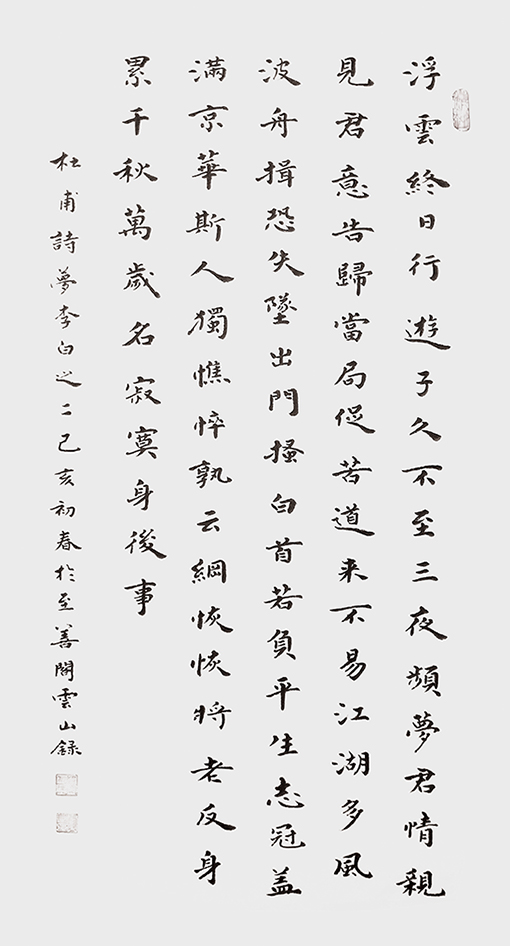 浮雲終日行遊子久不至三夜頻夢君情親
見君意告歸當局促苦道来不易江湖多風
波舟揖恐失墜出門搔白首若負平生志冠盖
滿京華斯人獨憔悴孰云綱恢恢将老反身
累千秋萬歲名寂寞身後事
杜甫詩夢李白之二己亥初春於至善閣雲山録